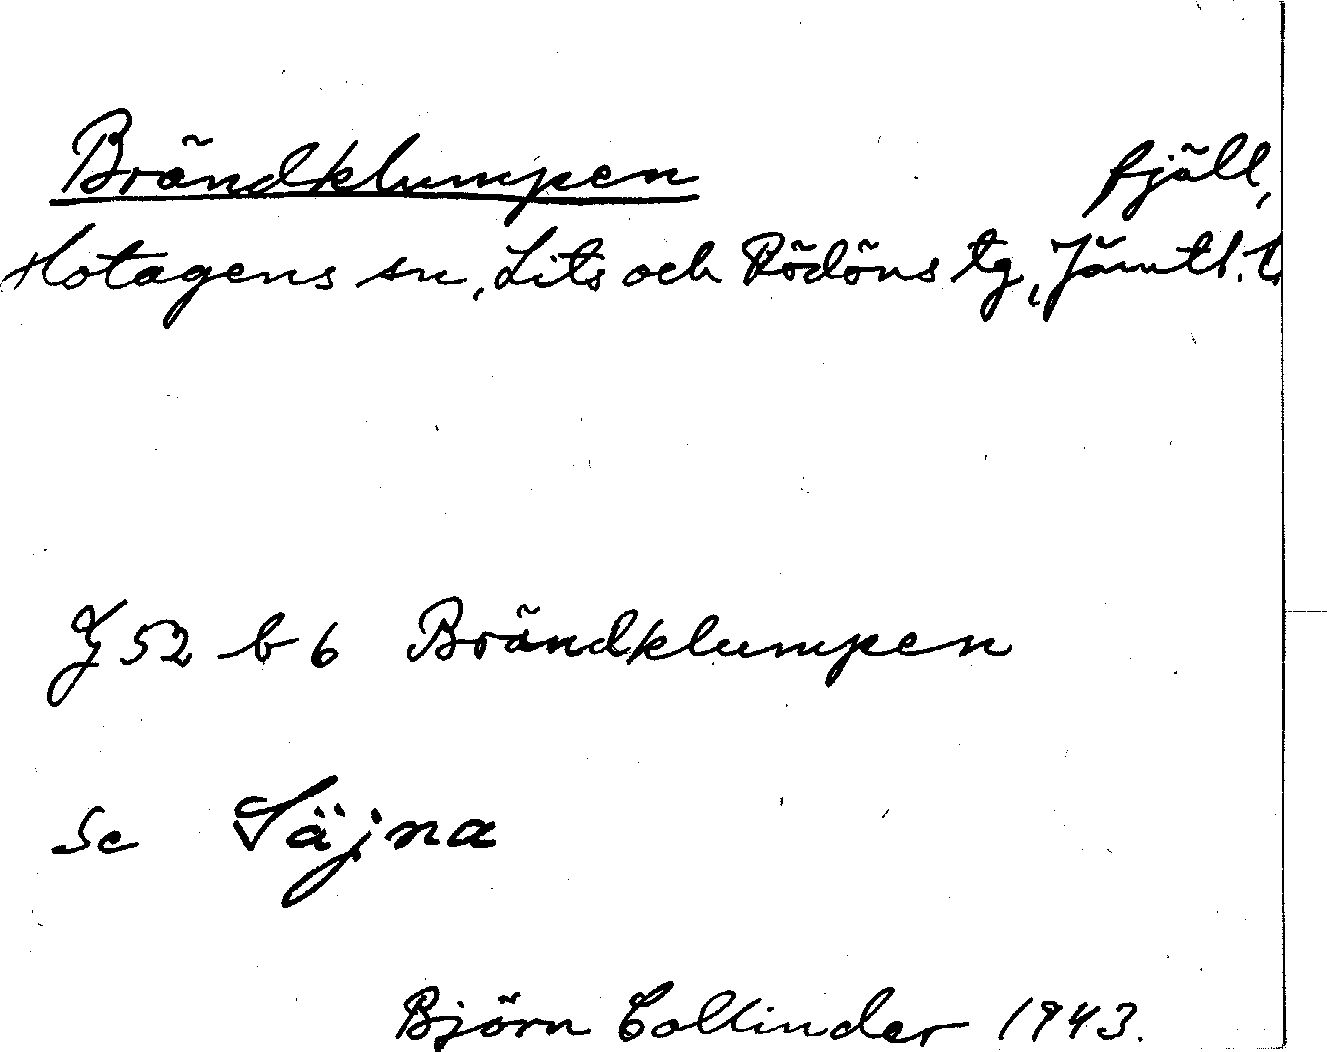 Brändklumpen fjäll,
Hotagens sn, Lits och Rödöns tg, Jämtl. l.
J 52 b 6 Brändklumpen
Se Säjna
Björn Collinder 1943.